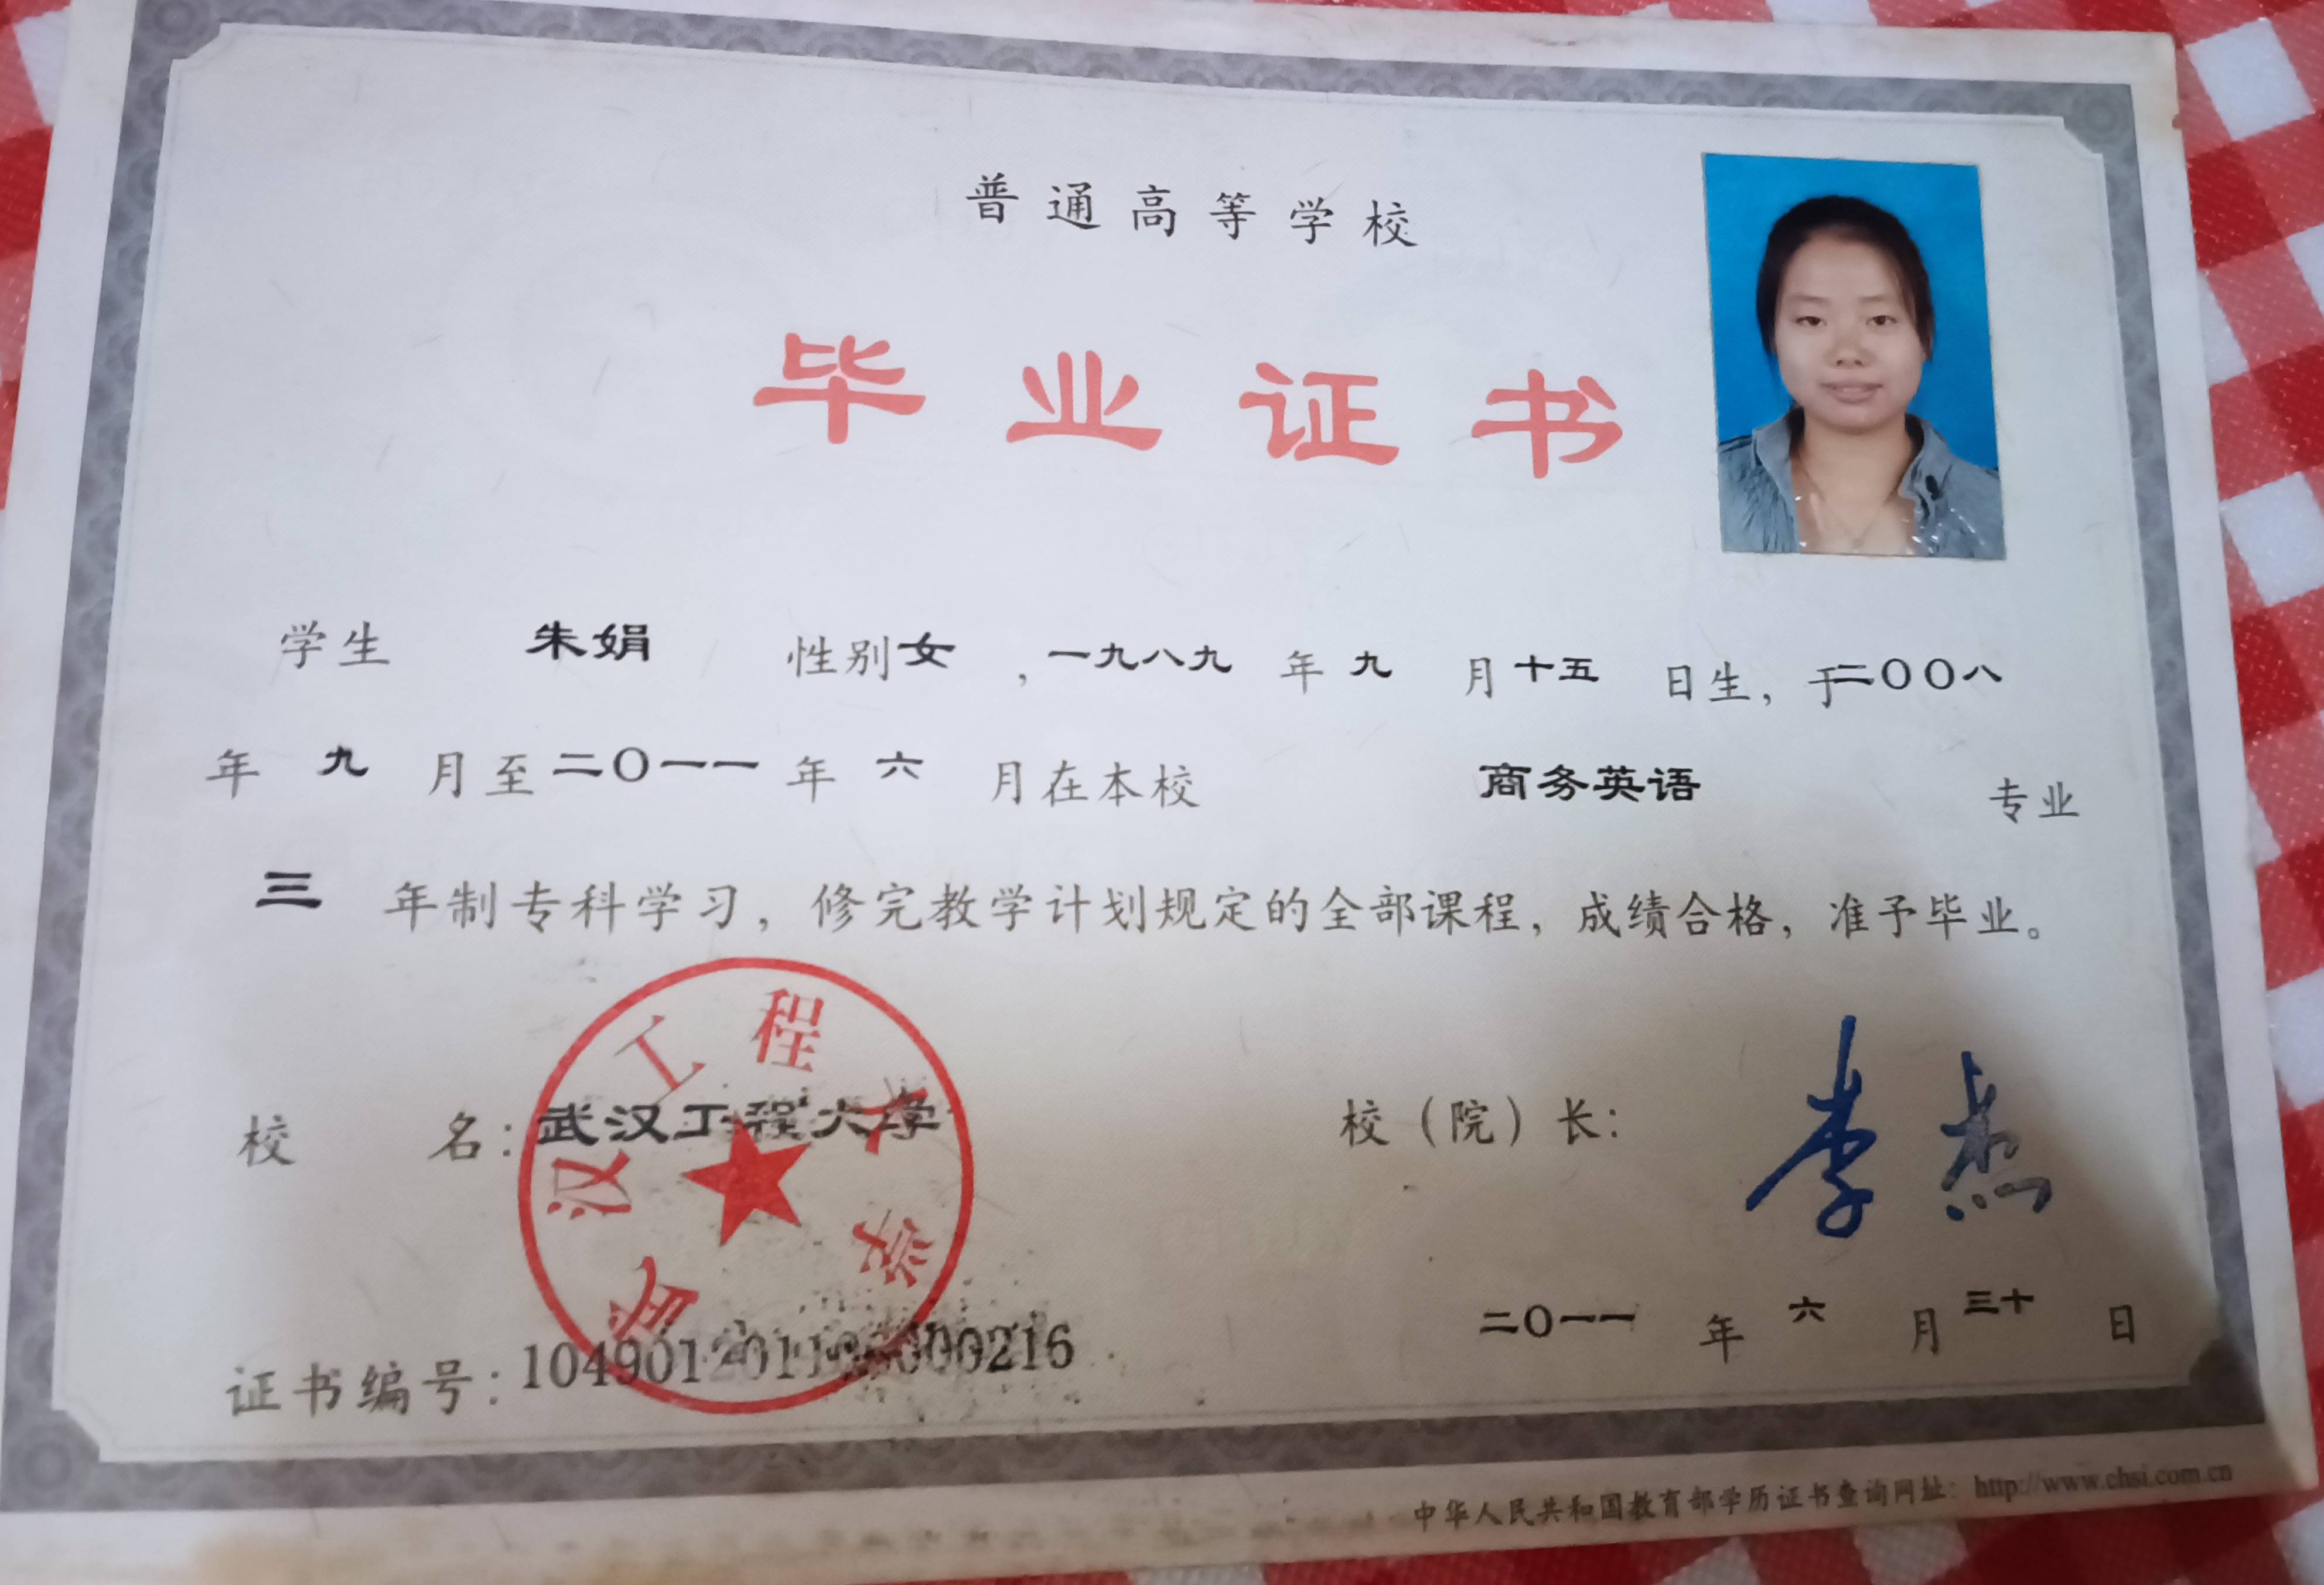 普通高等学校
毕业证书
学生 朱娟 性别女，一九八九年九月十五日生，于二〇〇八
年九月至二〇一一年六月在本校 商务英语 专业
三年制专科学习，修完教学计划规定的全部课程，成绩合格，准予毕业。
校 名：武汉工程大学
校（院）长：李杰
武汉工程大学
二〇一一年六月三十日
证书编号：104901201106000216
中华人民共和国教育部学历证书查询网址：http://www.chsi.com.cn